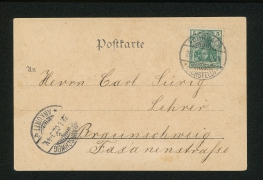 Postkarte
An
Herrn Carl Sürig
Lehrer
Braunschweig
Fasanenstraße